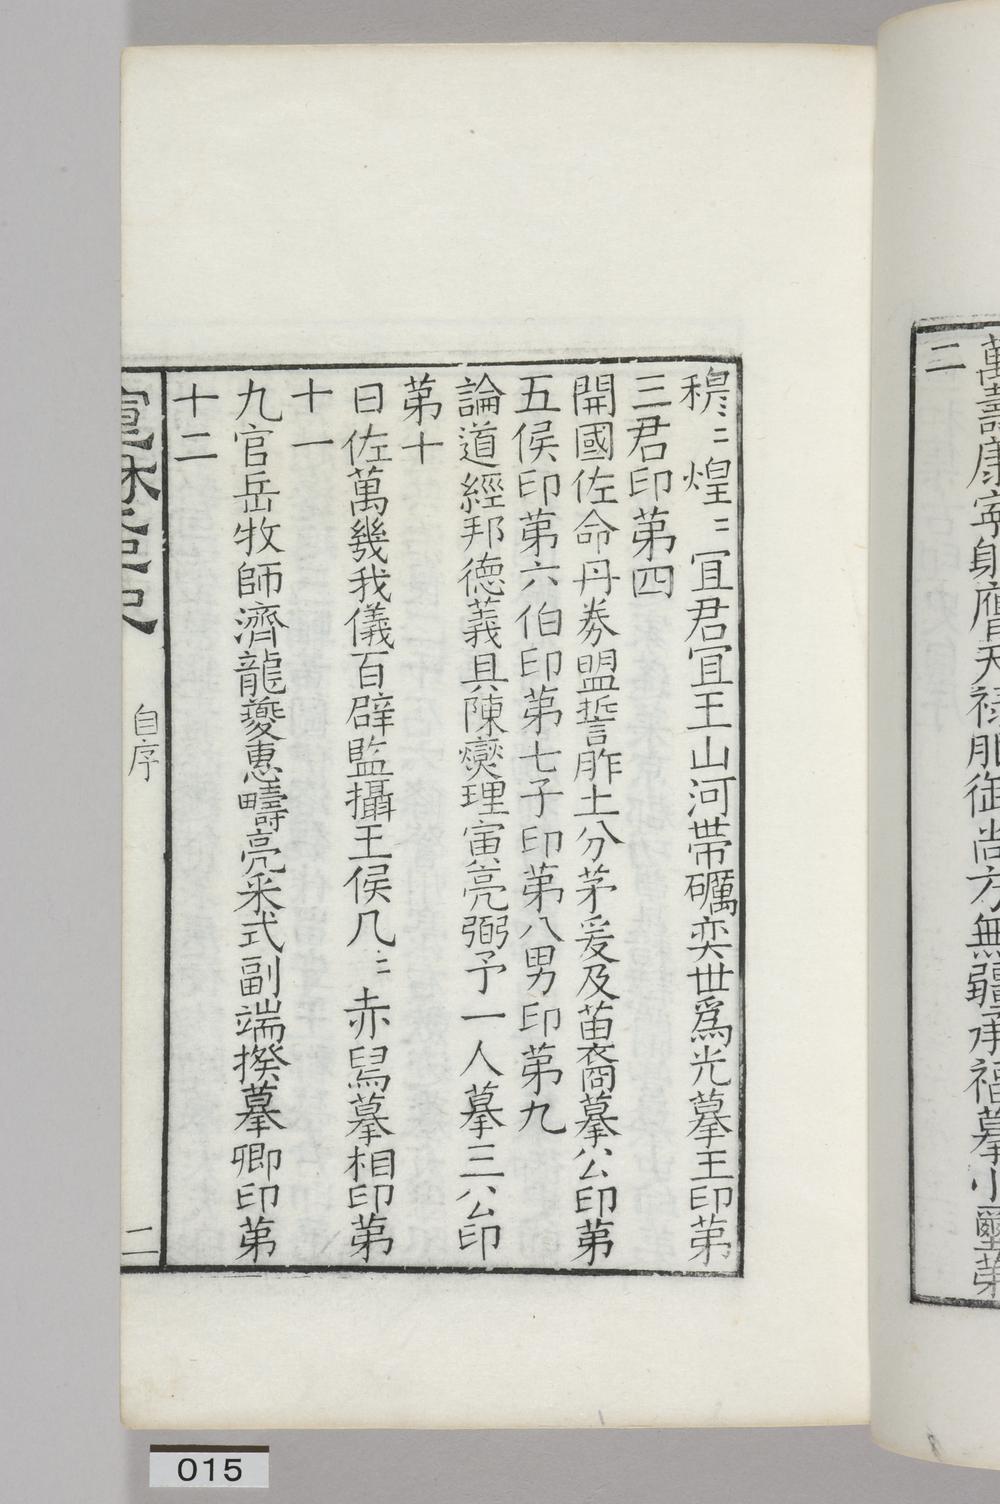 萬壽康寧躬膺天祿肥御尚方無疆承福摹小璽第
二
穆〻煌〻宜君宜王山河帶礪奕世爲光摹王印第
三君印第四
開國佐命丹券盟誓胙土分茅爰及苗裔摹公印第
五侯印第六伯印第七子印第八男印第九
論道經邦德義具陳燮理寅亮弼予一人摹三公印
第十
曰佐萬幾我儀百辟監攝王侯几〻赤舄摹相印第
十一
九官岳牧師濟龍夔惠疇亮采式副端揆摹卿印第
十二
自序
二
015